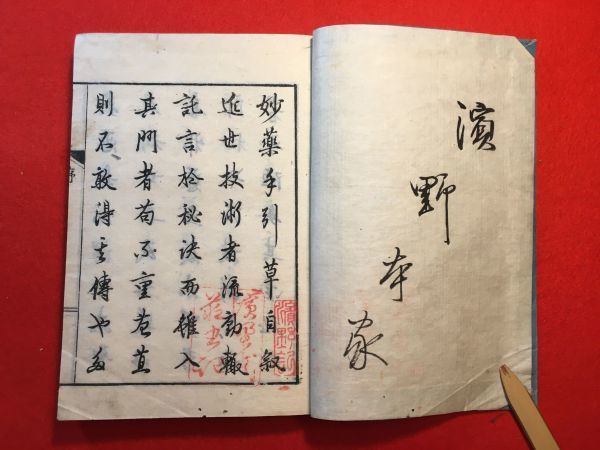 濱野本家
妙藥手引草自叙
近世技術者流動輙
託言於秘訣而雖入
其門者苟不重苞苴
則不敢得其傳也多
序